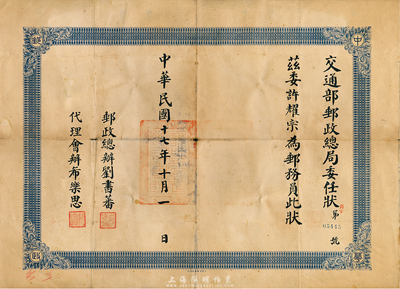 交通部郵政總局委任狀
第
號
茲委許耀宗為郵務員此狀
中華民國十七年十月一日
郵政總辦劉書蕃
代理會辦布樂思